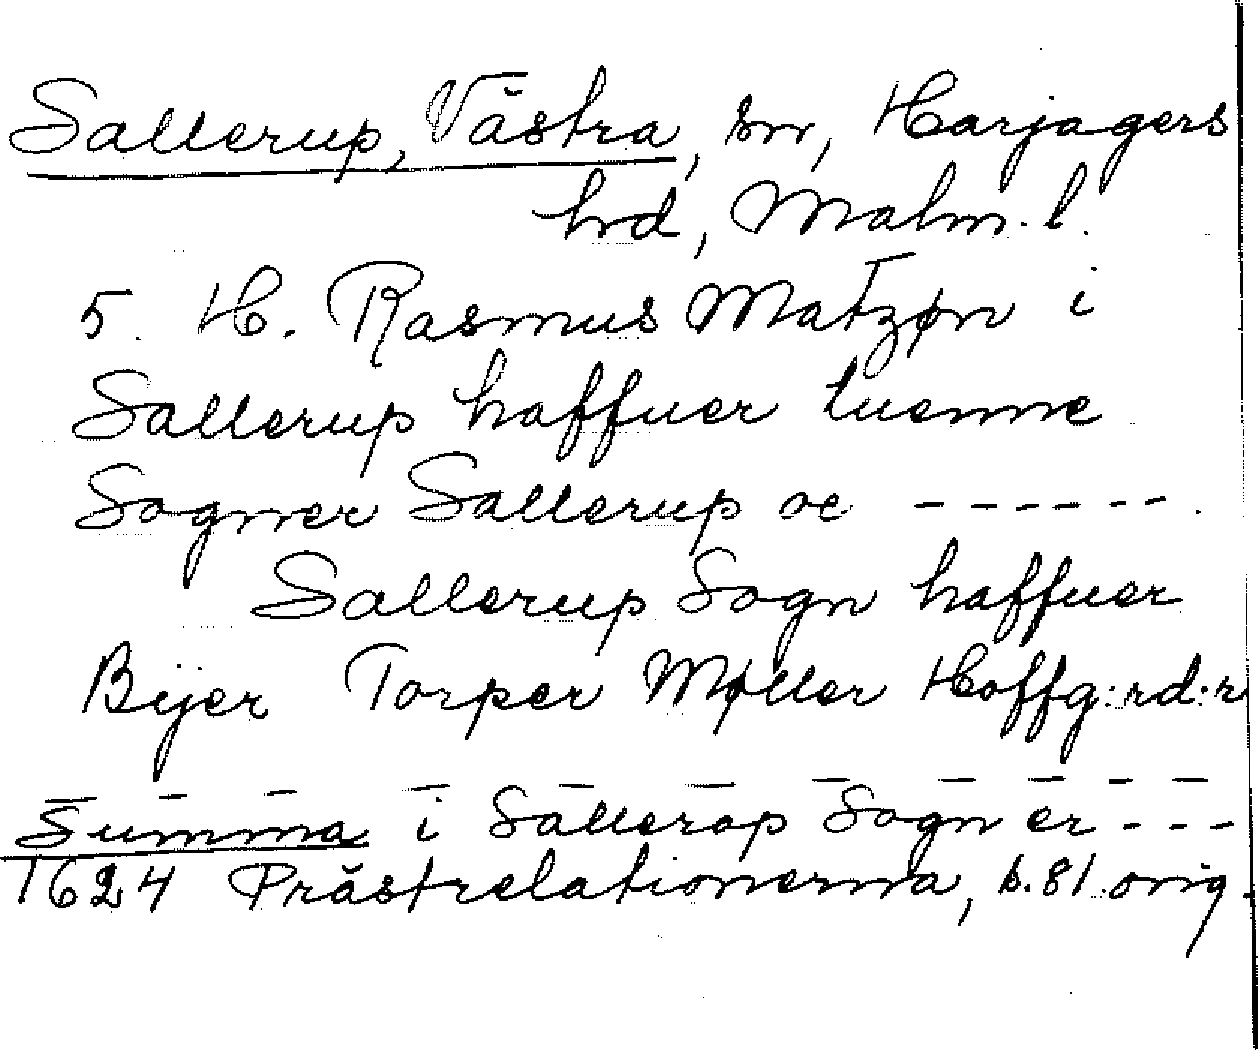 Sallerup, Västra, sn, Harjagers
hrd, Malm. l.
5. H. Rasmus Matzøn i
Sallerup haffuer tuenne
Sogner Sallerup oc ------
Sallerup Sogn haffuer
Byer Torper Møller Hoffg:rd:r
— — — — — — — — — —
Summa i Sallerop Sogn er ---
1624 Prästrelationerna, s. 81 orig.